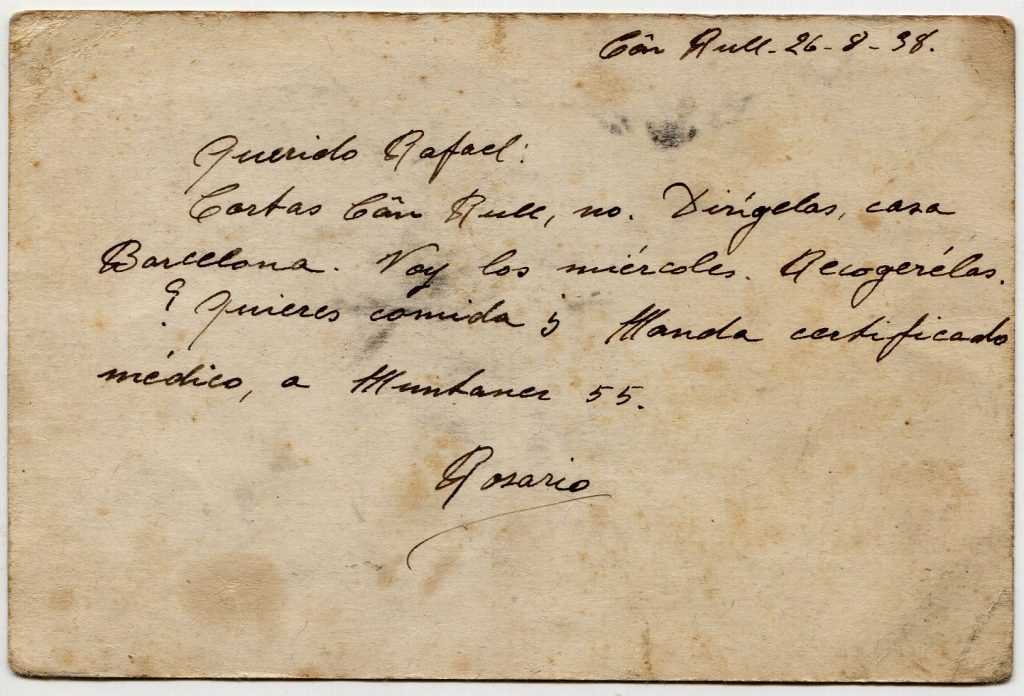 Cân Rull-26-8-38.
Querido Rafael:
Cartas Cân Rull, no. Dirígelas, casa
Barcelona. Voy los miércoles. Recogerélas.
¿Quieres comida? Manda certificado
médico, a Muntaner 55.
Rosario